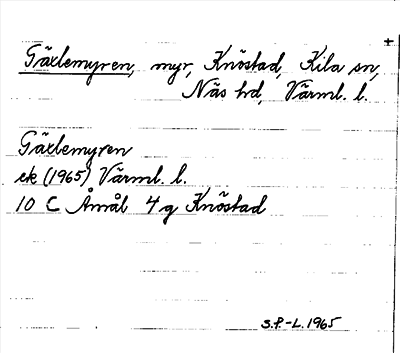 Gäxlemyren, myr, Knöstad, Kila sn,
Näs hd, Värml. l.
Gäxlemyren
ek (1965) Värml. l.
10 C Åmål 4 g Knöstad
S.P.-L. 1965